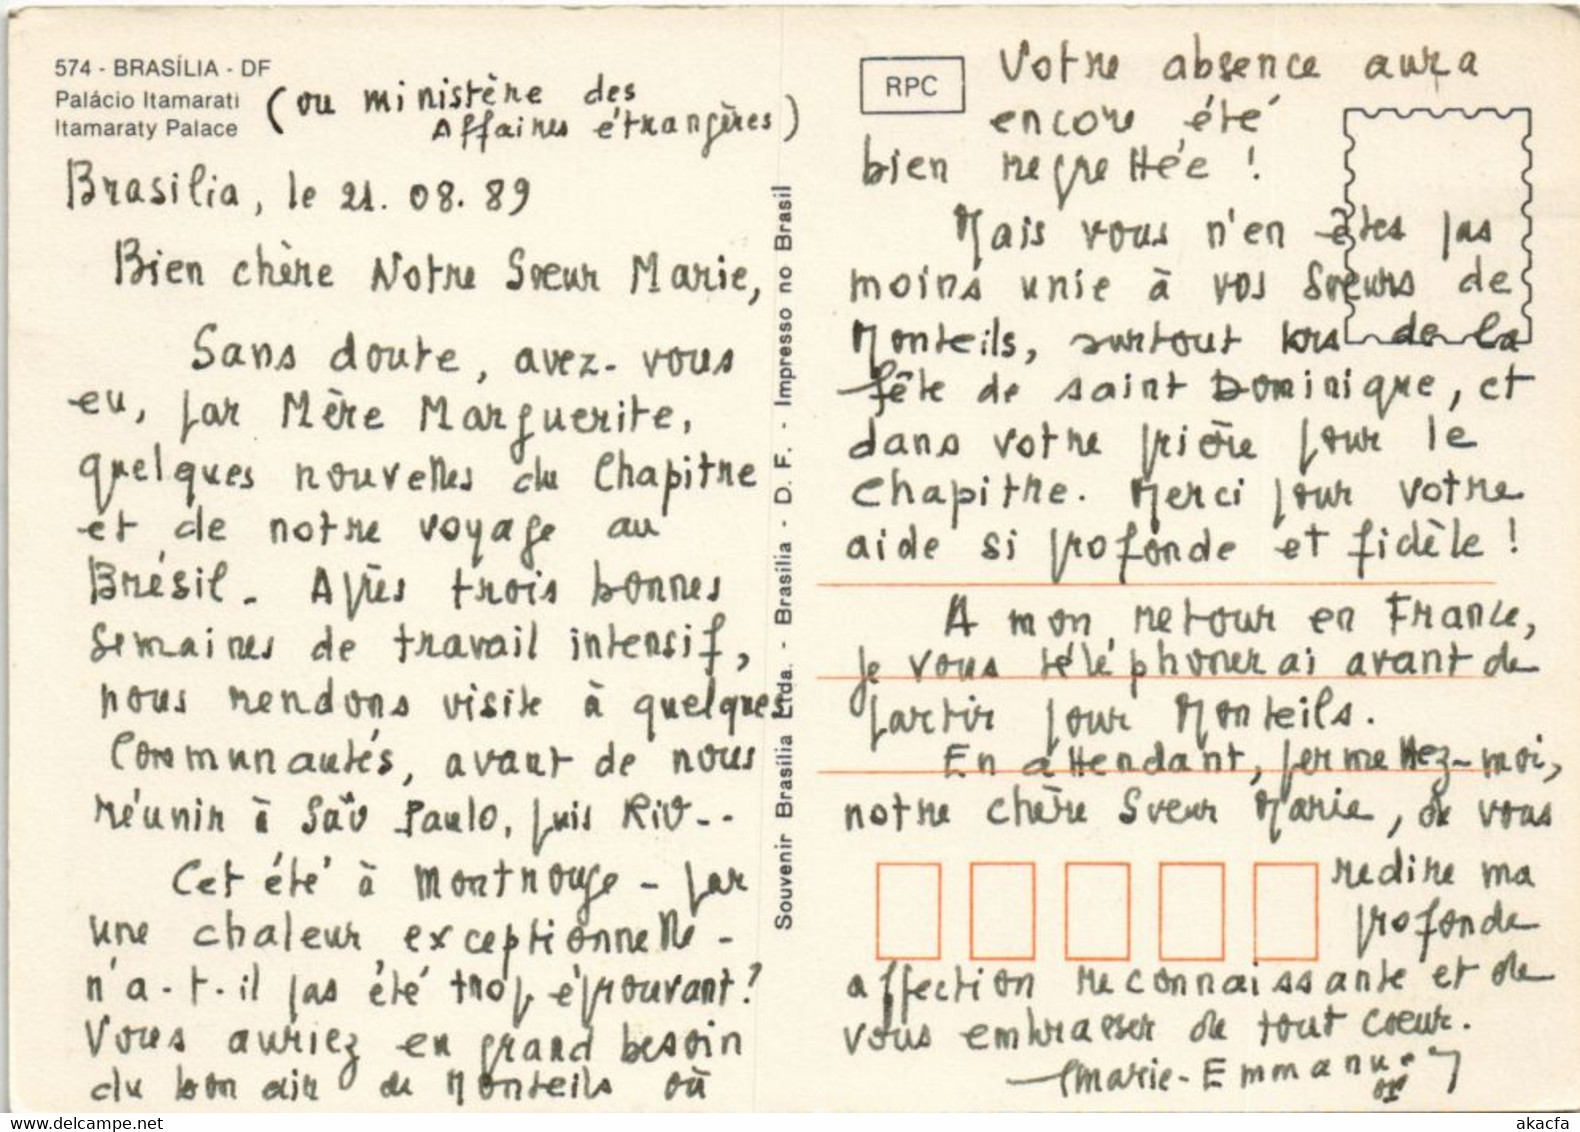 574 - BRASÍLIA - DF
Palácio Itamarati
Itamaraty Palace
(ou ministère des
Affaires étrangères)
Brasilia, le 21. 08. 89
Bien chère Notre Sœur Marie,
Sans doute, avez-vous
eu, par Mère Marguerite,
quelques nouvelles du Chapitre
et de notre voyage au
Brésil. Après trois bonnes
semaines de travail intensif,
nous rendons visite à quelques
Communautés, avant de nous
réunir à São Paulo, puis Rio..
Cet été à Montrouge - par
une chaleur exceptionnelle -
n'a-t-il pas été trop éprouvant?
Vous auriez eu grand besoin
du bon air de Monteils où
Souvenir Brasília Ltda. - Brasília - D. F. - Impresso no Brasil
RPC
Votre absence aura
encore été
bien regrettée !
Mais vous n'en êtes pas
moins unie à vos Sœurs de
Monteils, surtout lors de la
fête de saint Dominique, et
dans votre prière pour le
Chapitre. Merci pour votre
aide si profonde et fidèle !
A mon retour en France,
je vous téléphonerai avant de
partir pour Monteils.
En attendant, permettez-moi,
notre chère Sœur Marie, de vous
redire ma
profonde
affection reconnaissante et de
vous embrasser de tout cœur.
Marie-Emmanuel
akacfa